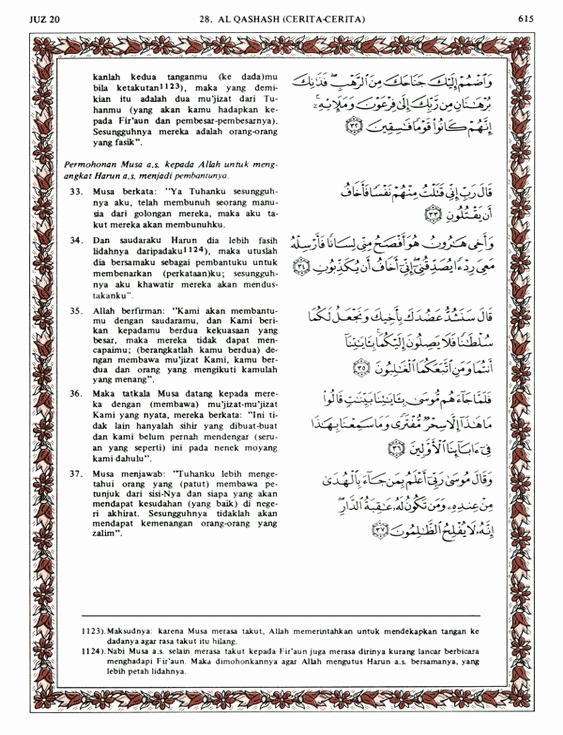 JUZ 20
28. AL QASHASH (CERITA-CERITA)
615
kanlah kedua tanganmu (ke dada)mu
bila ketakutan1123), maka yang demi-
kian itu adalah dua mu'jizat dari Tu-
hanmu (yang akan kamu hadapkan ke-
pada Fir'aun dan pembesar-pembesarnya).
Sesungguhnya mereka adalah orang-orang
yang fasik".
وَاضْمُمْ إِلَيْكَ جَنَاحَكَ مِنَ الرَّهْبِ فَذَانِكَ
بُرْهَانَانِ مِنْ رَبِّكَ إِلَىٰ فِرْعَوْنَ وَمَلَإِيْهِ
إِنَّهُمْ كَانُوا قَوْمًا فَاسِقِينَ ﴿٣٢﴾
Permohonan Musa a.s. kepada Allah untuk meng-
angkat Harun a.s. menjadi pembantunya.
33. Musa berkata: "Ya Tuhanku sesungguh-
nya aku, telah membunuh seorang manu-
sia dari golongan mereka, maka aku ta-
kut mereka akan membunuhku.
قَالَ رَبِّ إِنِّي قَتَلْتُ مِنْهُمْ نَفْسًا فَأَخَافُ
أَنْ يَقْتُلُونِ ﴿٣٣﴾
34. Dan saudaraku Harun dia lebih fasih
lidahnya daripadaku1124), maka utuslah
dia bersamaku sebagai pembantuku untuk
membenarkan (perkataan)ku; sesungguh-
nya aku khawatir mereka akan mendus-
takanku".
وَأَخِي هَارُونُ هُوَ أَفْصَحُ مِنِّي لِسَانًا فَأَرْسِلْهُ
مَعِيَ رِدْءًا يُصَدِّقُنِي إِنِّي أَخَافُ أَنْ يُكَذِّبُونِ ﴿٣٤﴾
35. Allah berfirman: "Kami akan membantu-
mu dengan saudaramu, dan Kami beri-
kan kepadamu berdua kekuasaan yang
besar, maka mereka tidak dapat men-
capaimu; (berangkatlah kamu berdua) de-
ngan membawa mu'jizat Kami, kamu ber-
dua dan orang yang mengikuti kamulah
yang menang".
قَالَ سَنَشُدُّ عَضُدَكَ بِأَخِيكَ وَنَجْعَلُ لَكُمَا
سُلْطَانًا فَلَا يَصِلُونَ إِلَيْكُمَا بِآيَاتِنَا
أَنْتُمَا وَمَنِ اتَّبَعَكُمَا الْغَالِبُونَ ﴿٣٥﴾
36. Maka tatkala Musa datang kepada mere-
ka dengan (membawa) mu'jizat-mu'jizat
Kami yang nyata, mereka berkata: "Ini ti-
dak lain hanyalah sihir yang dibuat-buat
dan kami belum pernah mendengar (seru-
an yang seperti) ini pada nenek moyang
kami dahulu".
فَلَمَّا جَاءَهُمْ مُوسَىٰ بِآيَاتِنَا بَيِّنَاتٍ قَالُوا
مَا هَٰذَا إِلَّا سِحْرٌ مُفْتَرًى وَمَا سَمِعْنَا بِهَٰذَا
فِي آبَائِنَا الْأَوَّلِينَ ﴿٣٦﴾
37. Musa menjawab: "Tuhanku lebih menge-
tahui orang yang (patut) membawa pe-
tunjuk dari sisi-Nya dan siapa yang akan
mendapat kesudahan (yang baik) di nege-
ri akhirat. Sesungguhnya tidaklah akan
mendapat kemenangan orang-orang yang
zalim".
وَقَالَ مُوسَىٰ رَبِّي أَعْلَمُ بِمَنْ جَاءَ بِالْهُدَىٰ
مِنْ عِنْدِهِ وَمَنْ تَكُونُ لَهُ عَاقِبَةُ الدَّارِ
إِنَّهُ لَا يُفْلِحُ الظَّالِمُونَ ﴿٣٧﴾
1123). Maksudnya: karena Musa merasa takut, Allah memerintahkan untuk mendekapkan tangan ke
dadanya agar rasa takut itu hilang.
1124). Nabi Musa a.s. selain merasa takut kepada Fir'aun juga merasa dirinya kurang lancar berbicara
menghadapi Fir'aun. Maka dimohonkannya agar Allah mengutus Harun a.s. bersamanya, yang
lebih petah lidahnya.